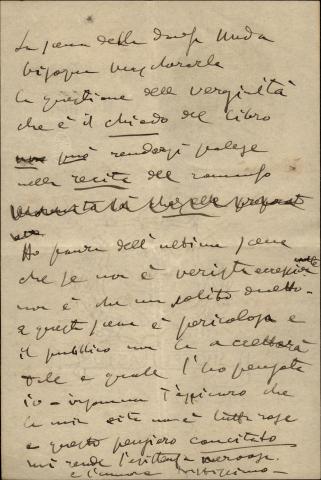 La scena della danza nuda
bisogna
la questione della verginità
che è il chiodo del libro
non può rendersi palese
nella recita del romanzo

Ho paura dell'ultima scena
che se non è verista
non è che un solito duetto -
e questa scena è pericolosa e
il pubblico non la accetterà
tale e quale l'ho pensata
io - insomma t'assicuro che
la mia vita non è tutta rose
e questo pensiero concitato
mi rende l'esistenza nervosa.
e l'umore